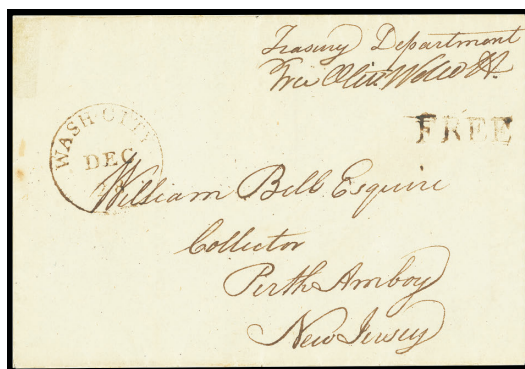 Treasury Department
Free Oliv. Wolcott.
FREE
WASH CITY
DEC
William Bell Esquire
Collector
Perth Amboy
New Jersey